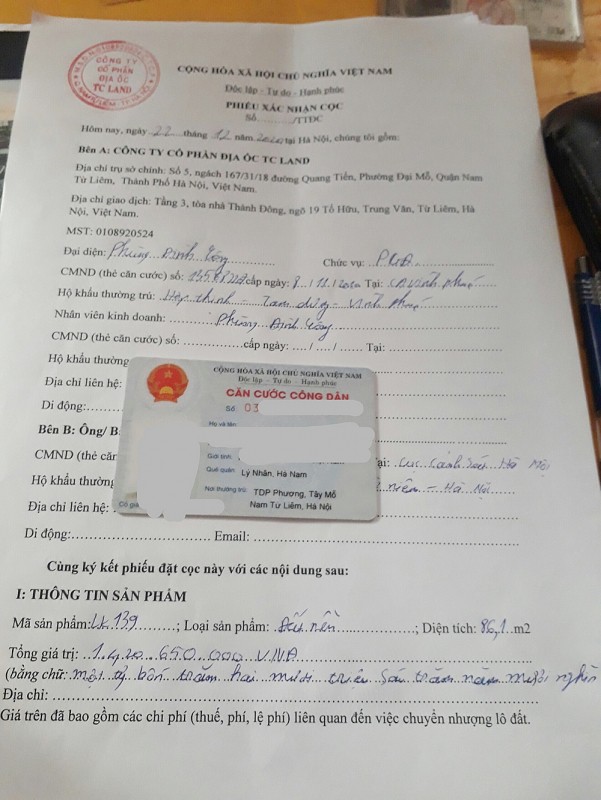 CÔNG TY
CỔ PHẦN
ĐỊA ỐC
TC LAND
CỘNG HÒA XÃ HỘI CHỦ NGHĨA VIỆT NAM
Độc lập - Tự do - Hạnh phúc
PHIẾU XÁC NHẬN CỌC
Số............/TTĐC
Hôm nay, ngày 22 tháng 12 năm 2020 tại Hà Nội, chúng tôi gồm:
Bên A: CÔNG TY CỔ PHẦN ĐỊA ỐC TC LAND
Địa chỉ trụ sở chính: Số 5, ngách 167/31/18 đường Quang Tiến, Phường Đại Mỗ, Quận Nam
Từ Liêm, Thành Phố Hà Nội, Việt Nam.
Địa chỉ giao dịch: Tầng 3, tòa nhà Thành Đông, ngõ 19 Tố Hữu, Trung Văn, Từ Liêm, Hà
Nội, Việt Nam.
MST: 0108920524
Đại diện: Phùng Đình Chức vụ:
CMND (thẻ căn cước) số: cấp ngày: 11 Tại: CA Vĩnh Phúc
Hộ khẩu thường trú: Hợp Thịnh - Tam Dương - Vĩnh Phúc
Nhân viên kinh doanh: Phùng Đình
CMND (thẻ căn cước) số: ............cấp ngày: ..../..../...... Tại: ............
Hộ khẩu thường
Địa chỉ liên hệ:
Di động:
CỘNG HÒA XÃ HỘI CHỦ NGHĨA VIỆT NAM
Độc lập - Tự do - Hạnh phúc
CĂN CƯỚC CÔNG DÂN
Số 03
Họ và tên
Giới tính
Quê quán: Lý Nhân, Hà Nam
Nơi thường trú: TDP Phượng, Tây Mỗ
Nam Từ Liêm, Hà Nội
Có giá
Bên B: Ông/ B
CMND (thẻ căn ại: Cục Cảnh Sát Hà Nội
Hộ khẩu thường Liêm - Hà Nội
Địa chỉ liên hệ:
Di động:............ Email: ............
Cùng ký kết phiếu đặt cọc này với các nội dung sau:
I: THÔNG TIN SẢN PHẨM
Mã sản phẩm: LK 139 ; Loại sản phẩm: Đất nền ; Diện tích: 86,1 m2
Tổng giá trị: 1.420.650.000 VNĐ
(bằng chữ: một tỷ bốn trăm hai mươi triệu sáu trăm năm mươi nghìn
Địa chỉ: ............
Giá trên đã bao gồm các chi phí (thuế, phí, lệ phí) liên quan đến việc chuyển nhượng lô đất.